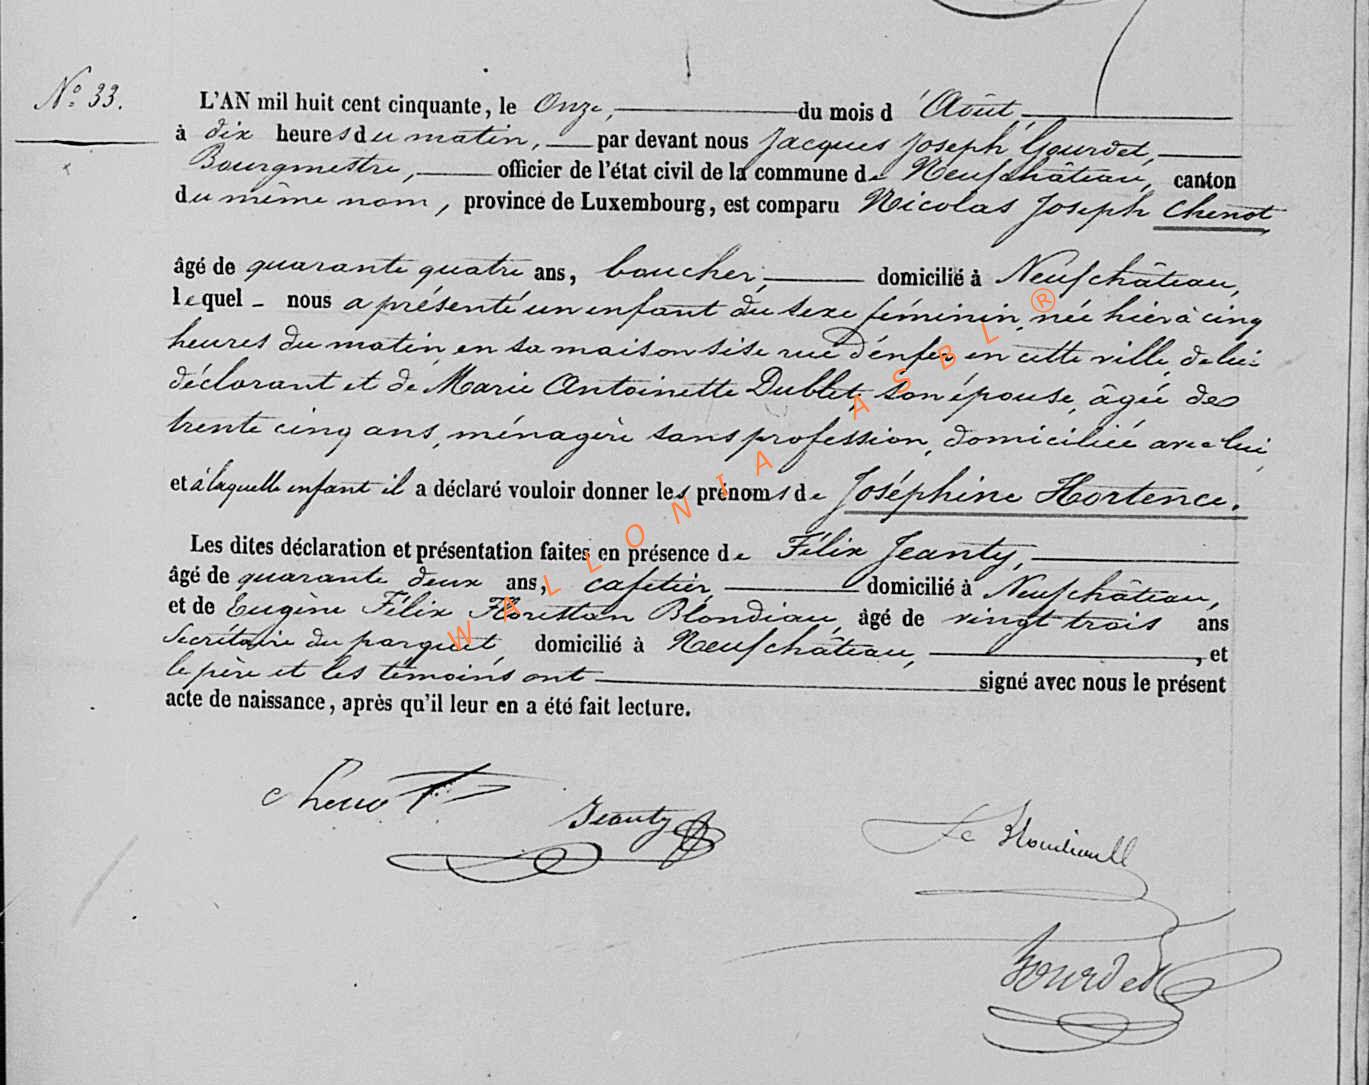 N.º 33.
L'AN mil huit cent cinquante, le Onze, du mois d'Août,
à dix heures du matin, par devant nous Jacques Joseph Gourdet,
Bourgmestre, officier de l'état civil de la commune de Neufchâteau, canton
du même nom, province de Luxembourg, est comparu Nicolas Joseph Chenot
âgé de quarante quatre ans, boucher, domicilié à Neufchâteau,
lequel nous a présenté un enfant du sexe féminin, née hier à cinq
heures du matin, en sa maison sise rue d'enfer en cette ville, de lui
déclarant et de Marie Antoinette Dublet, son épouse, âgée de
trente cinq ans, ménagère sans profession, domiciliée avec lui,
et à laquelle enfant il a déclaré vouloir donner les prénoms de Joséphine Hortence.
Les dites déclaration et présentation faites en présence de Félix Jeanty,
âgé de quarante deux ans, cafetier, domicilié à Neufchâteau,
et de Eugène Félix Floristan Blondiau, âgé de vingt trois ans
Secrétaire du parquet domicilié à Neufchâteau, et
le père et les témoins ont signé avec nous le présent
acte de naissance, après qu'il leur en a été fait lecture.
WALLONIA ASBL ®
Chenot
Jeanty
Gourdet